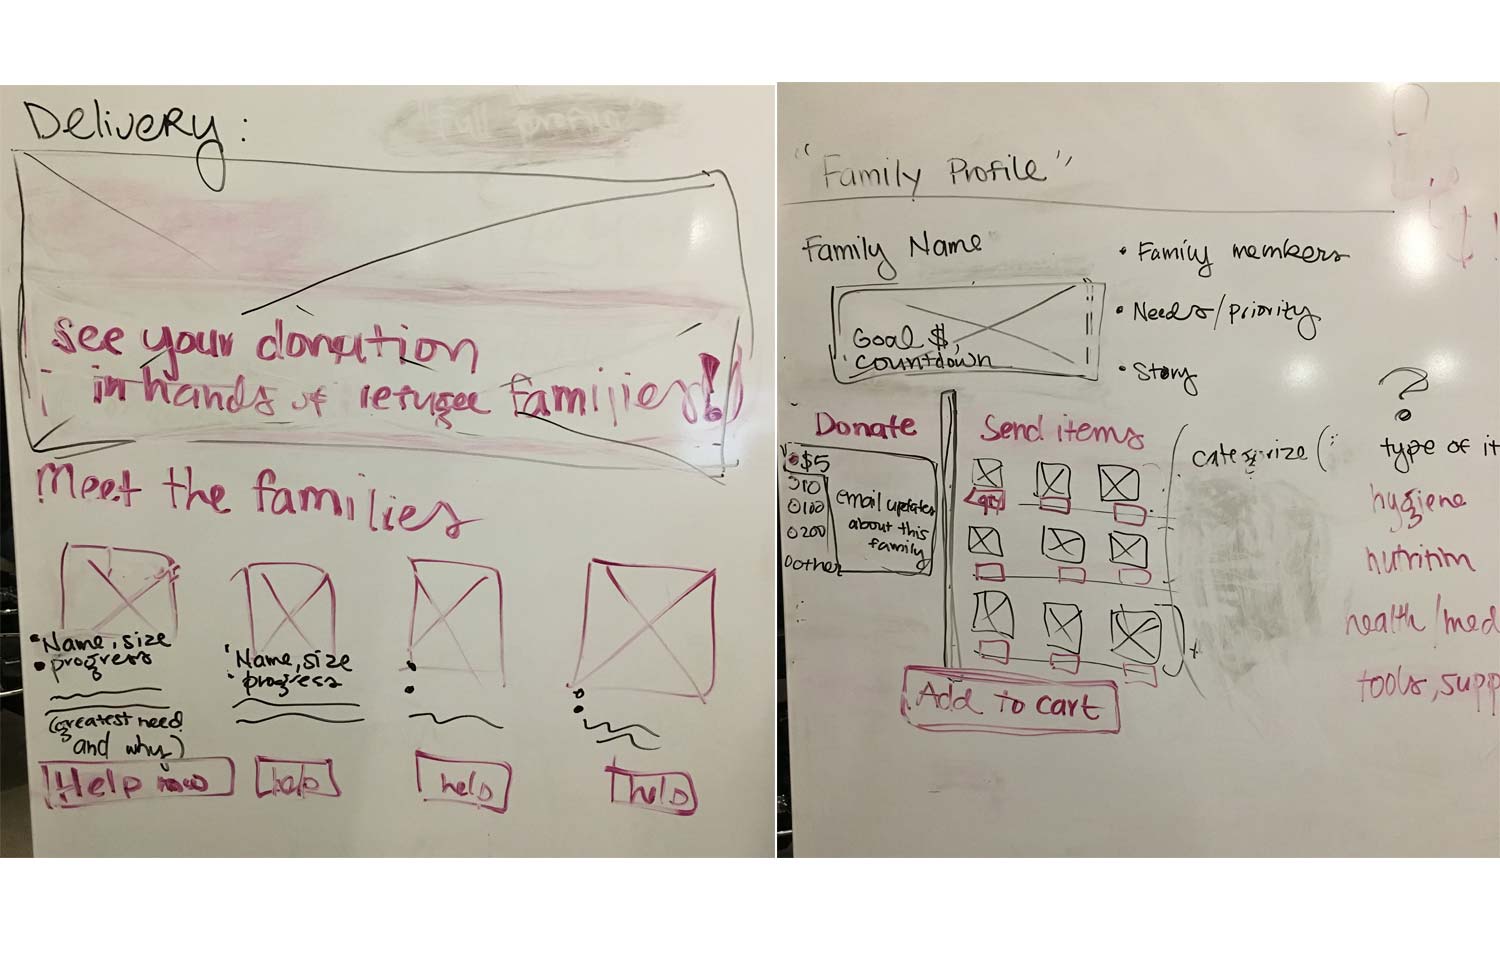 Delivery:
Full profile
See your donation
in hands of refugee families!
Meet the families
• Name, size
• progress
(greatest need
and why)
Help now
• Name, size
• progress
help
help
help
"Family Profile"
Family Name
Goal $,
countdown
• Family members
• Needs/priority
• Story
Donate
$5
10
100
200
other
email updates
about this
family
Send items
categorize (
?
type of it
hygiene
nutrition
health/med
tools, supp
Add to cart
$!